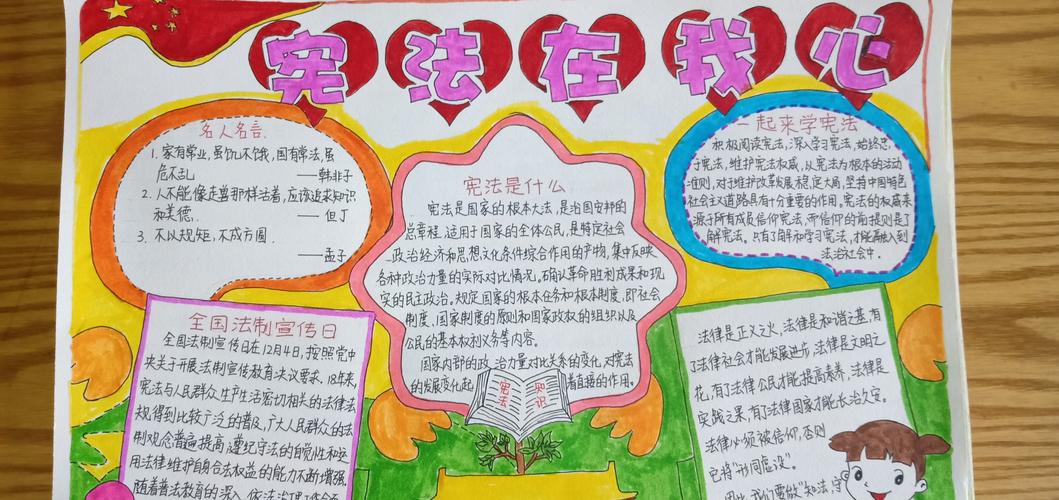 宪法在我心
名人名言
1. 家有常业,虽饥不饿,国有常法,虽
危不乱 ——韩非子
2. 人不能像走兽那样活着,应该追求知识
和美德. —— 但丁
3. 不以规矩,不成方圆.
——孟子
宪法是什么
宪法是国家的根本大法,是治国安邦的
总章程,适用于国家的全体公民,是特定社会
政治经济和思想文化条件综合作用的产物,集中反映
各种政治力量的实际对比情况。确认革命胜利成果和现
实的民主政治。规定国家的根本任务和根本制度,即社会
制度、国家制度的原则和国家政权的组织以及
公民的基本权利义务等内容。
国家内部的政治力量对比关系的变化,对宪法
的发展变化起 着直接的作用。
宪法
知识
一起来学宪法
积极阅读宪法,深入学习宪法,始终忠
于宪法,维护宪法权威,从宪法为根本的活动
准则,对于维护改革发展稳定大局,坚持中国特色
社会主义道路具有十分重要的作用。宪法的权威来
源于所有成员信仰宪法,而信仰的前提则是了
解宪法。只有了解和学习宪法,才能融入到
法治社会中.
全国法制宣传日
全国法制宣传日在12月4日,按照党中
央关于开展法制宣传教育决议要求,18年来,
宪法与人民群众生产生活密切相关的法律法
规得到比较广泛的普及,广大人民群众的法
制观念普遍提高,遵纪守法的自觉性和运
用法律维护自身合法权益的能力不断增强.
随着普法教育的深入,依法治理工作
法律是正义之火,法律是和谐之基,有
了法律社会才能发展进步,法律是文明之
花,有了法律公民才能提高素养,法律是
实践之果,有了法律国家才能长治久安。
法律必须被信仰,否则
它将"形同虚设"。
因此,我们要做"知法,守